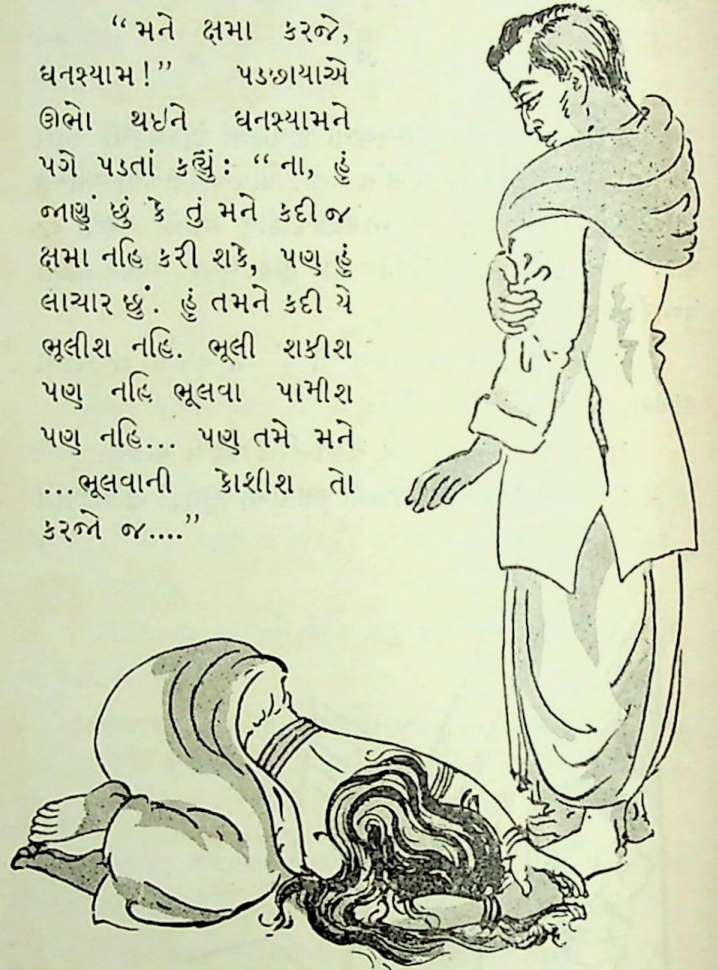 “મને ક્ષમા કરજે,
ઘનશ્યામ!” પડછાયાએ
ઊભો થઇને ઘનશ્યામને
પગે પડતાં કહ્યું: “ના, હું
જાણું છું કે તું મને કદી જ
ક્ષમા નહિ કરી શકે, પણ હું
લાચાર છું. હું તમને કદી યે
ભૂલીશ નહિ. ભૂલી શકીશ
પણ નહિ ભૂલવા પામીશ
પણ નહિ... પણ તમે મને
...ભૂલવાની કોશીશ તો
કરજો જ....”